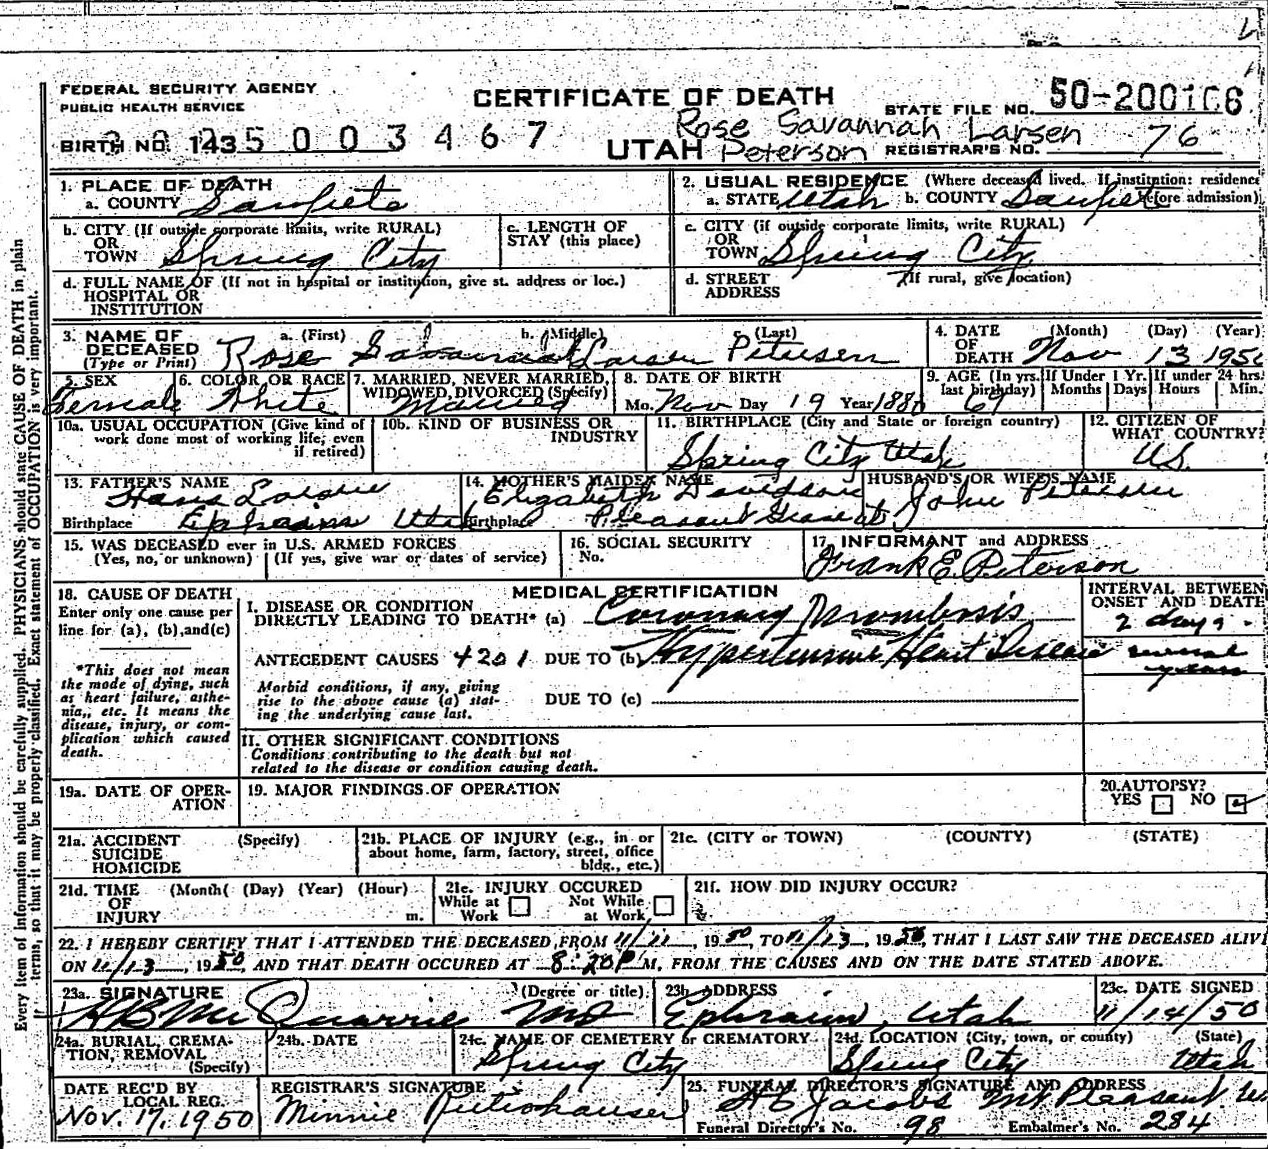 FEDERAL SECURITY AGENCY
PUBLIC HEALTH SERVICE
CERTIFICATE OF DEATH
STATE FILE NO. 50-200106
BIRTH NO. 143 5003467
UTAH
Rose Savannah Larsen
Peterson
REGISTRAR'S NO. 76
1. PLACE OF DEATH
a. COUNTY Sanpete
2. USUAL RESIDENCE (Where deceased lived. If institution: residence before admission)
a. STATE Utah b. COUNTY Sanpete
b. CITY (If outside corporate limits, write RURAL)
OR
TOWN Spring City
c. LENGTH OF
STAY (this place)
c. CITY (if outside corporate limits, write RURAL)
OR
TOWN Spring City
d. FULL NAME OF (If not in hospital or institution, give st. address or loc.)
HOSPITAL OR
INSTITUTION
d. STREET (If rural, give location)
ADDRESS
3. NAME OF
DECEASED
(Type or Print)
a. (First) b. (Middle) c. (Last)
Rose Savannah Larsen Petersen
4. DATE (Month) (Day) (Year)
OF
DEATH Nov 13 1950
5. SEX
Female
6. COLOR OR RACE
White
7. MARRIED, NEVER MARRIED,
WIDOWED, DIVORCED (Specify)
Married
8. DATE OF BIRTH
Mo. Nov Day 19 Year
9. AGE (In yrs. last birthday)
If Under 1 Yr. Months Days
If under 24 hrs. Hours Min.
10a. USUAL OCCUPATION (Give kind of
work done most of working life, even
if retired)
10b. KIND OF BUSINESS OR
INDUSTRY
11. BIRTHPLACE (City and State or foreign country)
Spring City Utah
12. CITIZEN OF
WHAT COUNTRY?
U.S.
13. FATHER'S NAME
Hans Larsen
Birthplace Ephraim Utah
14. MOTHER'S MAIDEN NAME
Elizabeth Davidson
Birthplace Pleasant Grove
HUSBAND'S OR WIFE'S NAME
John Petersen
15. WAS DECEASED ever in U.S. ARMED FORCES
(Yes, no, or unknown) (If yes, give war or dates of service)
16. SOCIAL SECURITY
No.
17. INFORMANT and ADDRESS
Frank E. Peterson
18. CAUSE OF DEATH
Enter only one cause per
line for (a), (b), and (c)
*This does not mean
the mode of dying, such
as heart failure, asthe-
nia,, etc. It means the
disease, injury, or com-
plication which caused
death.
MEDICAL CERTIFICATION
I. DISEASE OR CONDITION
DIRECTLY LEADING TO DEATH* (a) Coronary Thrombosis
ANTECEDENT CAUSES 4201 DUE TO (b) Hypertensive Heart Disease
Morbid conditions, if any, giving
rise to the above cause (a) stat-
ing the underlying cause last.
DUE TO (c)
INTERVAL BETWEEN
ONSET AND DEATH
2 days
several
years
II. OTHER SIGNIFICANT CONDITIONS
Conditions contributing to the death but not
related to the disease or condition causing death.
19a. DATE OF OPER-
ATION
19. MAJOR FINDINGS OF OPERATION
20. AUTOPSY?
YES NO
21a. ACCIDENT (Specify)
SUICIDE
HOMICIDE
21b. PLACE OF INJURY (e.g., in or
about home, farm, factory, street, office
bldg., etc.)
21c. (CITY or TOWN) (COUNTY) (STATE)
21d. TIME (Month( (Day) (Year) (Hour)
OF
INJURY m.
21e. INJURY OCCURED
While at Work Not While at Work
21f. HOW DID INJURY OCCUR?
22. I HEREBY CERTIFY THAT I ATTENDED THE DECEASED FROM 11/11, 1950, TO 11/13, 1950, THAT I LAST SAW THE DECEASED ALIVE
ON 11/13, 1950, AND THAT DEATH OCCURED AT 8:20P M, FROM THE CAUSES AND ON THE DATE STATED ABOVE.
23a. SIGNATURE (Degree or title)
H B McQuarrie MD
23b. ADDRESS
Ephraim, Utah
23c. DATE SIGNED
11/14/50
24a. BURIAL, CREMA-
TION, REMOVAL
(Specify)
24b. DATE
24c. NAME OF CEMETERY or CREMATORY
Spring City
24d. LOCATION (City, town, or county) (State)
Spring City Utah
DATE REC'D BY
LOCAL REG.
Nov. 17, 1950
REGISTRAR'S SIGNATURE
Minnie
25. FUNERAL DIRECTOR'S SIGNATURE AND ADDRESS
Jacobs Mt Pleasant
Funeral Director's No. 98 Embalmer's No. 284
Every item of information should be carefully supplied. PHYSICIANS should state CAUSE OF DEATH in plain
terms, so that it may be properly classified. Exact statement of OCCUPATION is very important.